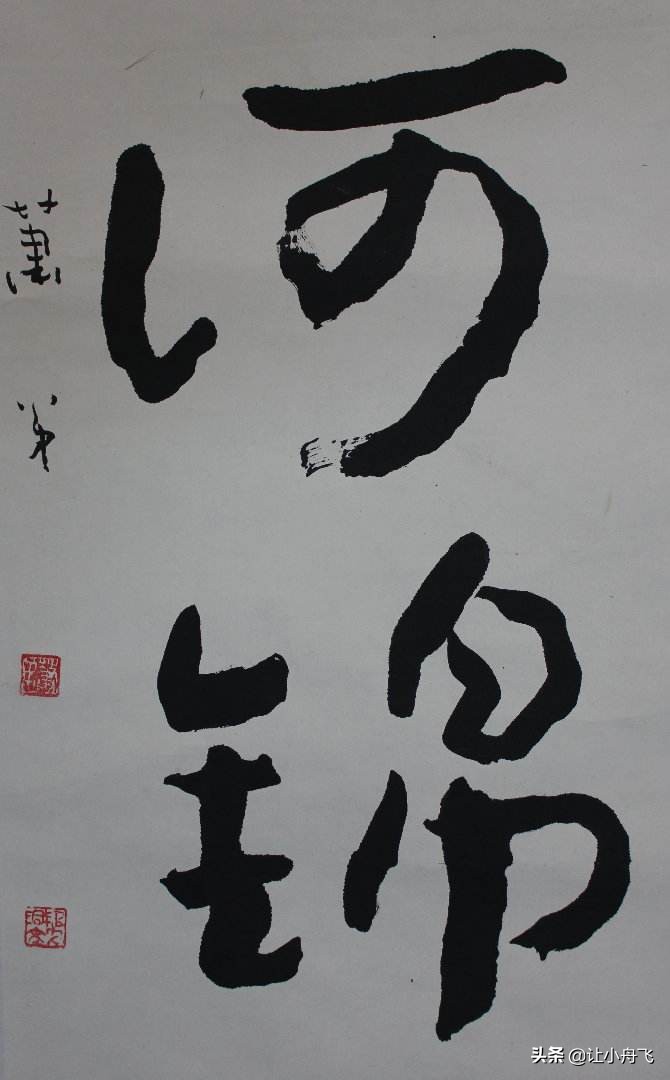 河錦
蕭弟
头条 @让小舟飞